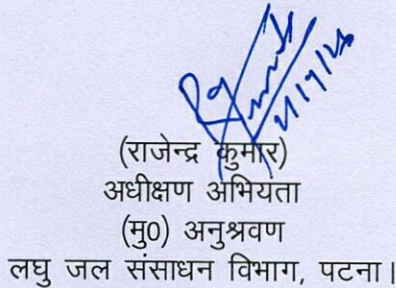 (राजेन्द्र कुमार)
अधीक्षण अभियंता
(मु0) अनुश्रवण
लघु जल संसाधन विभाग, पटना।